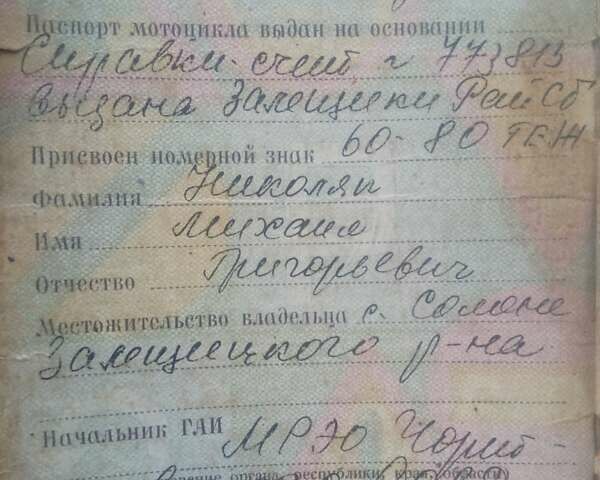 Паспорт мотоцикла выдан на основании
Справки-счет г 773815
выдана Залещики Рай СБ
Присвоен номерной знак 60-80 ТЕЖ
Фамилия Николяк
Имя Михаил
Отчество Григорьевич
Местожительство владельца с. Солоне
Залещицкого р-на
Начальник ГАИ МРЭО Чорт-
органа, республики, края, области)